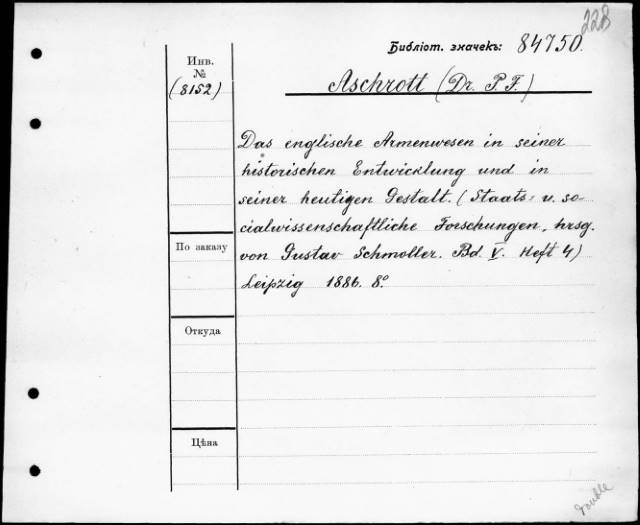 228
Библіот. значекъ: 84750.
Инв.
№
(8152)
Aschrott (Dr. P. F.)
Das englische Armenwesen in seiner
historischen Entwicklung und in
seiner heutigen Gestalt. (Staats- u. so-
cialwissenschaftliche Forschungen, hrsg.
von Gustav Schmoller. Bd. V. Heft 4)
Leipzig 1886. 8°.
По заказу
Откуда
Цѣна
double